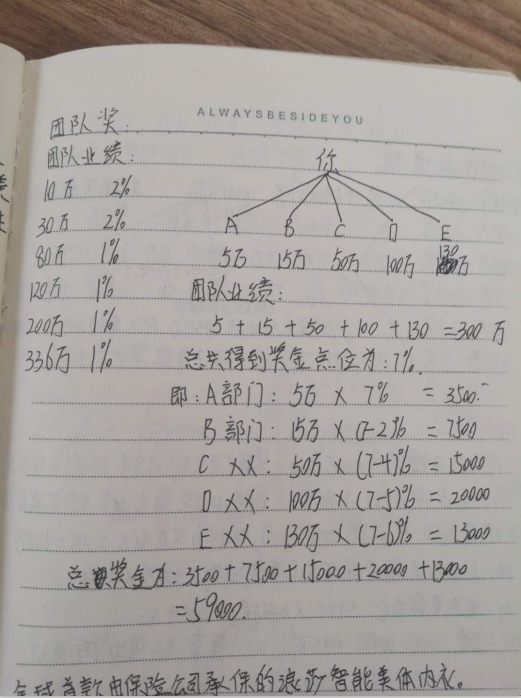 ALWAYSBESIDEYOU
团队奖:
团队业绩:
你
10万 2%
30万 2%
80万 1%
120万 1%
200万 1%
336万 1%
A B C D E
5万 15万 50万 100万 130万
团队业绩:
5 + 15 + 50 + 100 + 130 = 300 万
总共得到奖金点位为: 7%.
即: A部门: 5万 × 7% = 3500.
B部门: 15万 × (7-2)% = 7500
C ××: 50万 × (7-4)% = 15000
D ××: 100万 × (7-5)% = 20000
E ××: 130万 × (7-6)% = 13000
总奖金为: 3500 + 7500 + 15000 + 20000 + 13000
= 59000.
全球首款由保险公司承保的浪莎智能美体内衣。